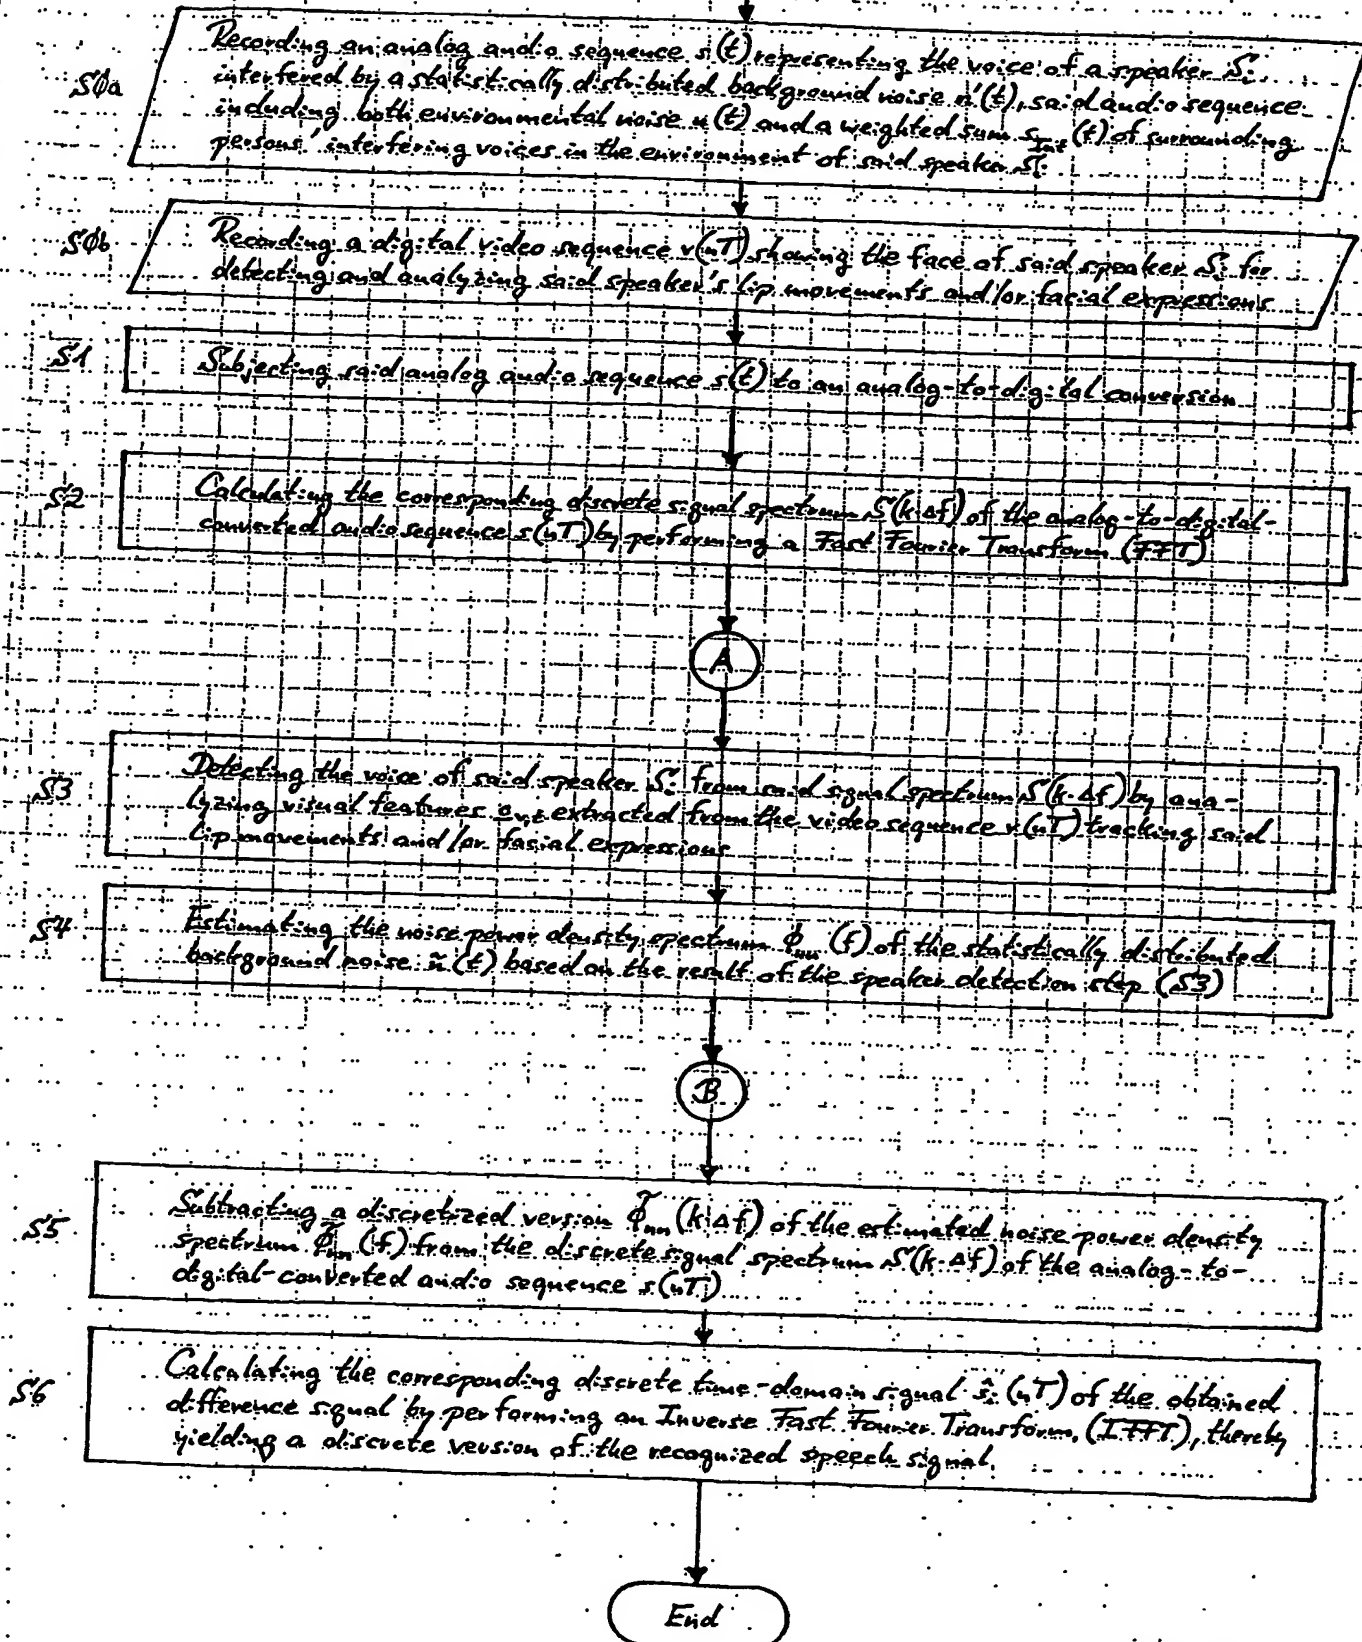 SØa
Recording an analog audio sequence s(t) representing the voice of a speaker Si
interfered by a statistically distributed background noise n'(t), said audio sequence
including both environmental noise n(t) and a weighted sum sInt(t) of surrounding
persons' interfering voices in the environment of said speaker Si
SØb
Recording a digital video sequence v(nT) showing the face of said speaker Si for
detecting and analyzing said speaker's lip movements and/or facial expressions
S1
Subjecting said analog audio sequence s(t) to an analog-to-digital conversion
S2
Calculating the corresponding discrete signal spectrum S(k·Δf) of the analog-to-digital-
converted audio sequence s(nT) by performing a Fast Fourier Transform (FFT)
A
S3
Detecting the voice of said speaker Si from said signal spectrum S(k·Δf) by ana-
lyzing visual features ov,t extracted from the video sequence v(nT) tracking said
lip movements and/or facial expressions
S4
Estimating the noise power density spectrum Φnn(f) of the statistically distributed
background noise ñ(t) based on the result of the speaker detection step (S3)
B
S5
Subtracting a discretized version Φ̃nn(k·Δf) of the estimated noise power density
spectrum Φ̃nn(f) from the discrete signal spectrum S(k·Δf) of the analog-to-
digital-converted audio sequence s(nT)
S6
Calculating the corresponding discrete time-domain signal ŝi(nT) of the obtained
difference signal by performing an Inverse Fast Fourier Transform, (IFFT), thereby
yielding a discrete version of the recognized speech signal.
End